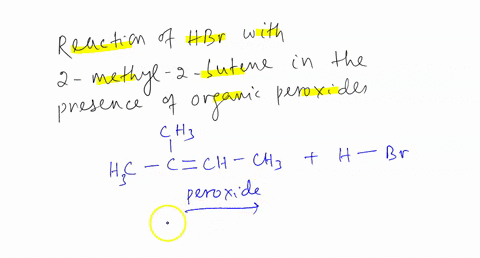 Reaction of HBr with
2-methyl-2-butene in the
presence of organic peroxides
CH3
H3C - C = CH - CH3 + H - Br
peroxide